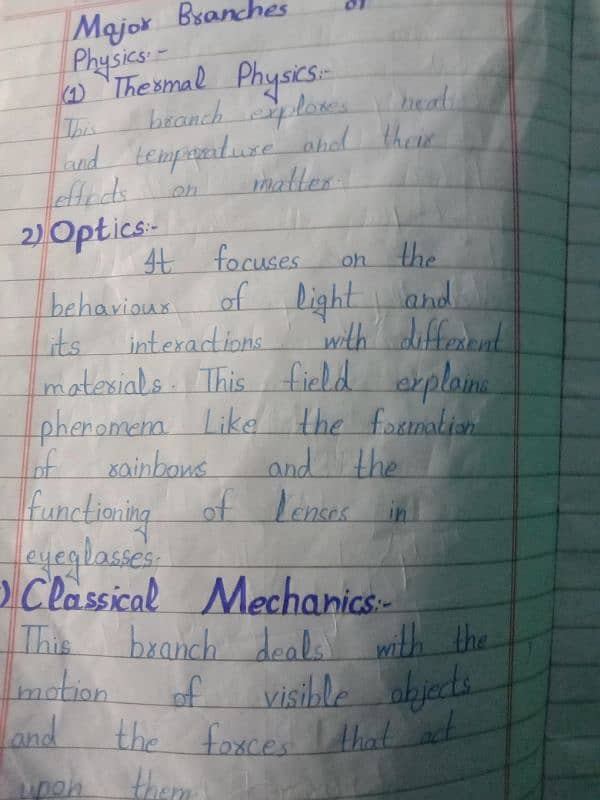 Major Branches of
Physics:-
(1) Thermal Physics:-
This branch explores heat
and temperature and their
effects on matter.
2) Optics:-
It focuses on the
behaviour of light and
its interactions with different
materials. This field explains
phenomena like the formation
of rainbows and the
functioning of lenses in
eyeglasses.
) Classical Mechanics:-
This branch deals with the
motion of visible objects
and the forces that act
upon them